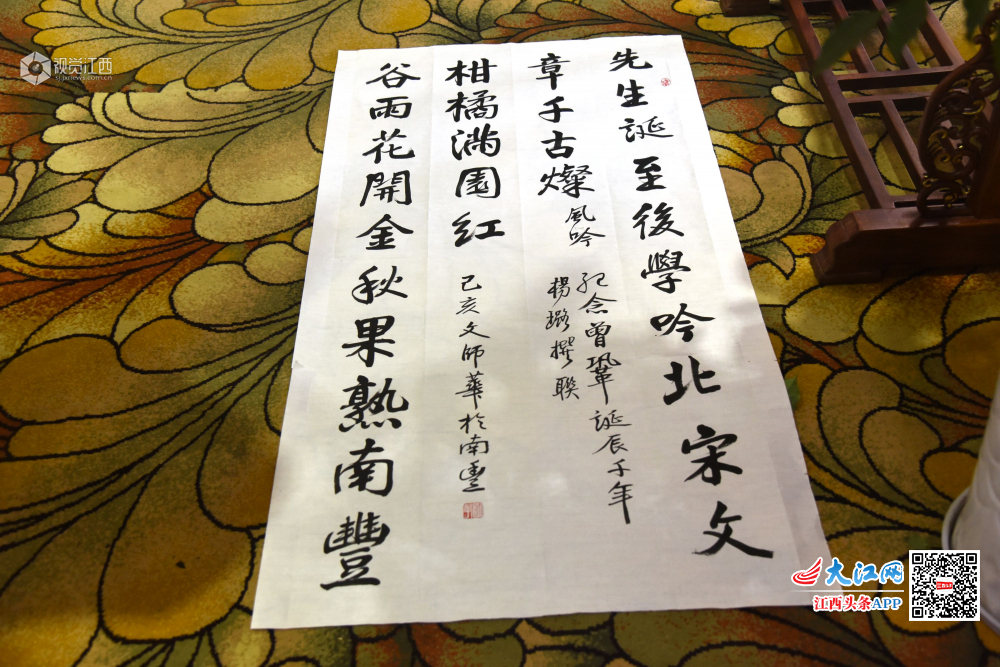 先生誕至後學吟北宋文
章千古燦
風吟
紀念曾鞏誕辰千年
楊璐撰聯
谷雨花開金秋果熟南豐
柑橘满園红
己亥文師華於南豐
视觉江西
sj.jxnews.com.cn
大江网
江西头条APP